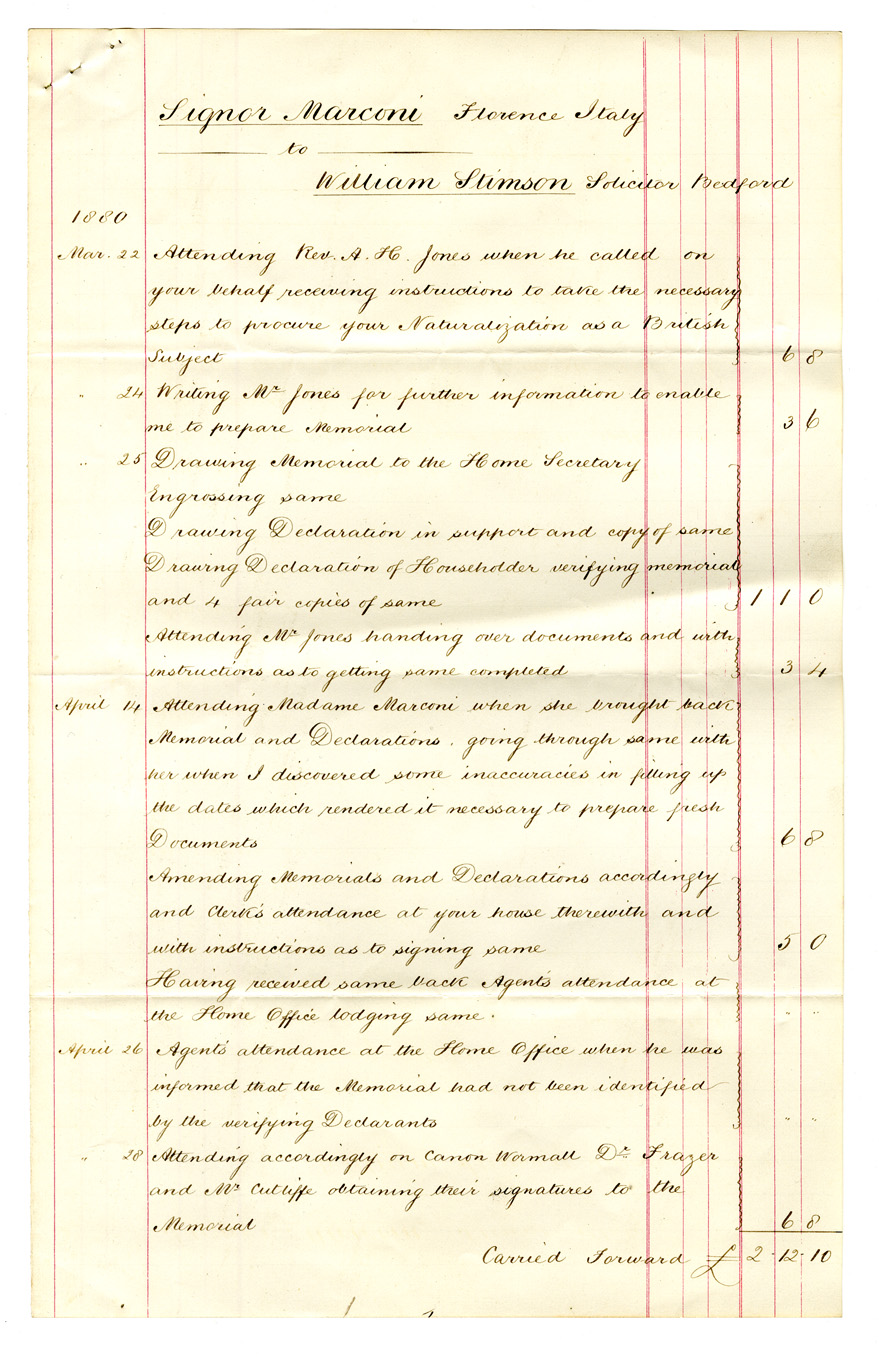 Signor Marconi Florence Italy
to
William Stimson Solicitor Bedford
1880
Mar. 22 Attending Rev. A. H. Jones when he called on
your behalf receiving instructions to take the necessary
steps to procure your Naturalization as a British
Subject 6 8
" 24 Writing Mr Jones for further information to enable
me to prepare Memorial 3 6
" 25 Drawing Memorial to the Home Secretary
Engrossing same
Drawing Declaration in support and copy of same
Drawing Declaration of Householder verifying memorial
and 4 fair copies of same 1 1 0
Attending Mr Jones handing over documents and with
instructions as to getting same completed 3 4
April 14 Attending Madame Marconi when she brought back
Memorial and Declarations. going through same with
her when I discovered some inaccuracies in filling up
the dates which rendered it necessary to prepare fresh
Documents 6 8
Amending Memorials and Declarations accordingly
and Clerk's attendance at your house therewith and
with instructions as to signing same 5 0
Having received same back Agent's attendance at
the Home Office lodging same. " "
April 26 Agent's attendance at the Home Office when he was
informed that the Memorial had not been identified
by the verifying Declarants " "
" 28 Attending accordingly on Canon Wormall Dr Frazer
and Mr Cutliffe obtaining their signatures to the
Memorial 6 8
Carried Forward £ 2 · 12 · 10